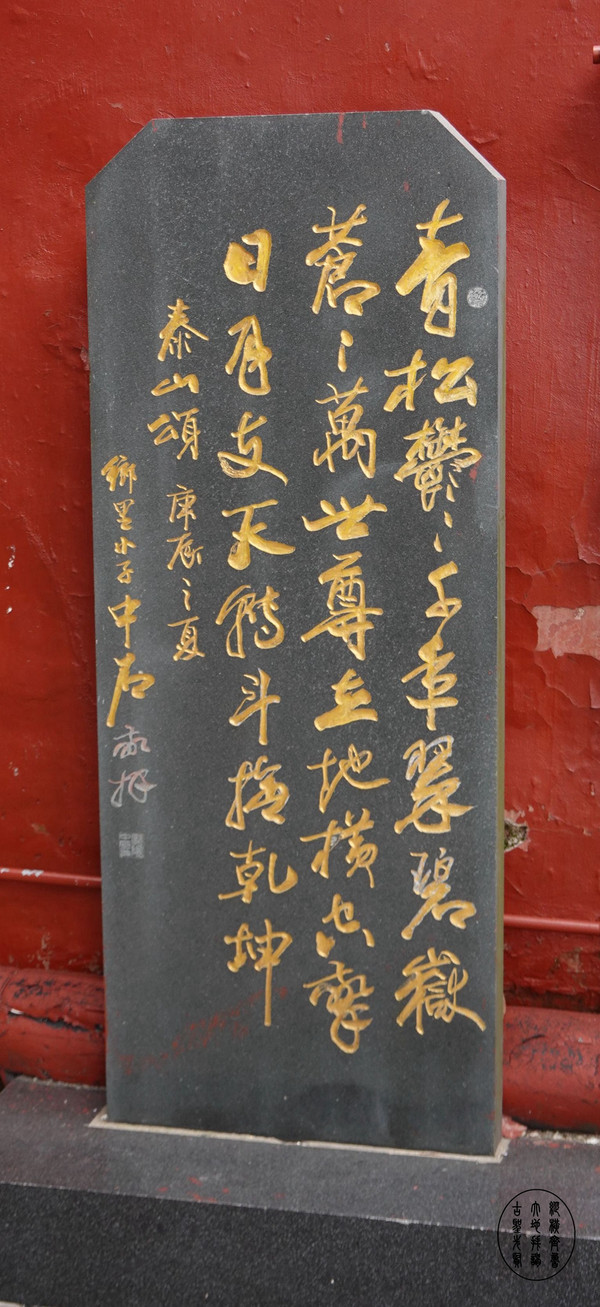 青松鬱〻千章翠碧嶽
蒼〻萬世尊立地橫空擎
日月支天斡斗撫乾坤
泰山頌 庚辰之夏
鄉里小子中石